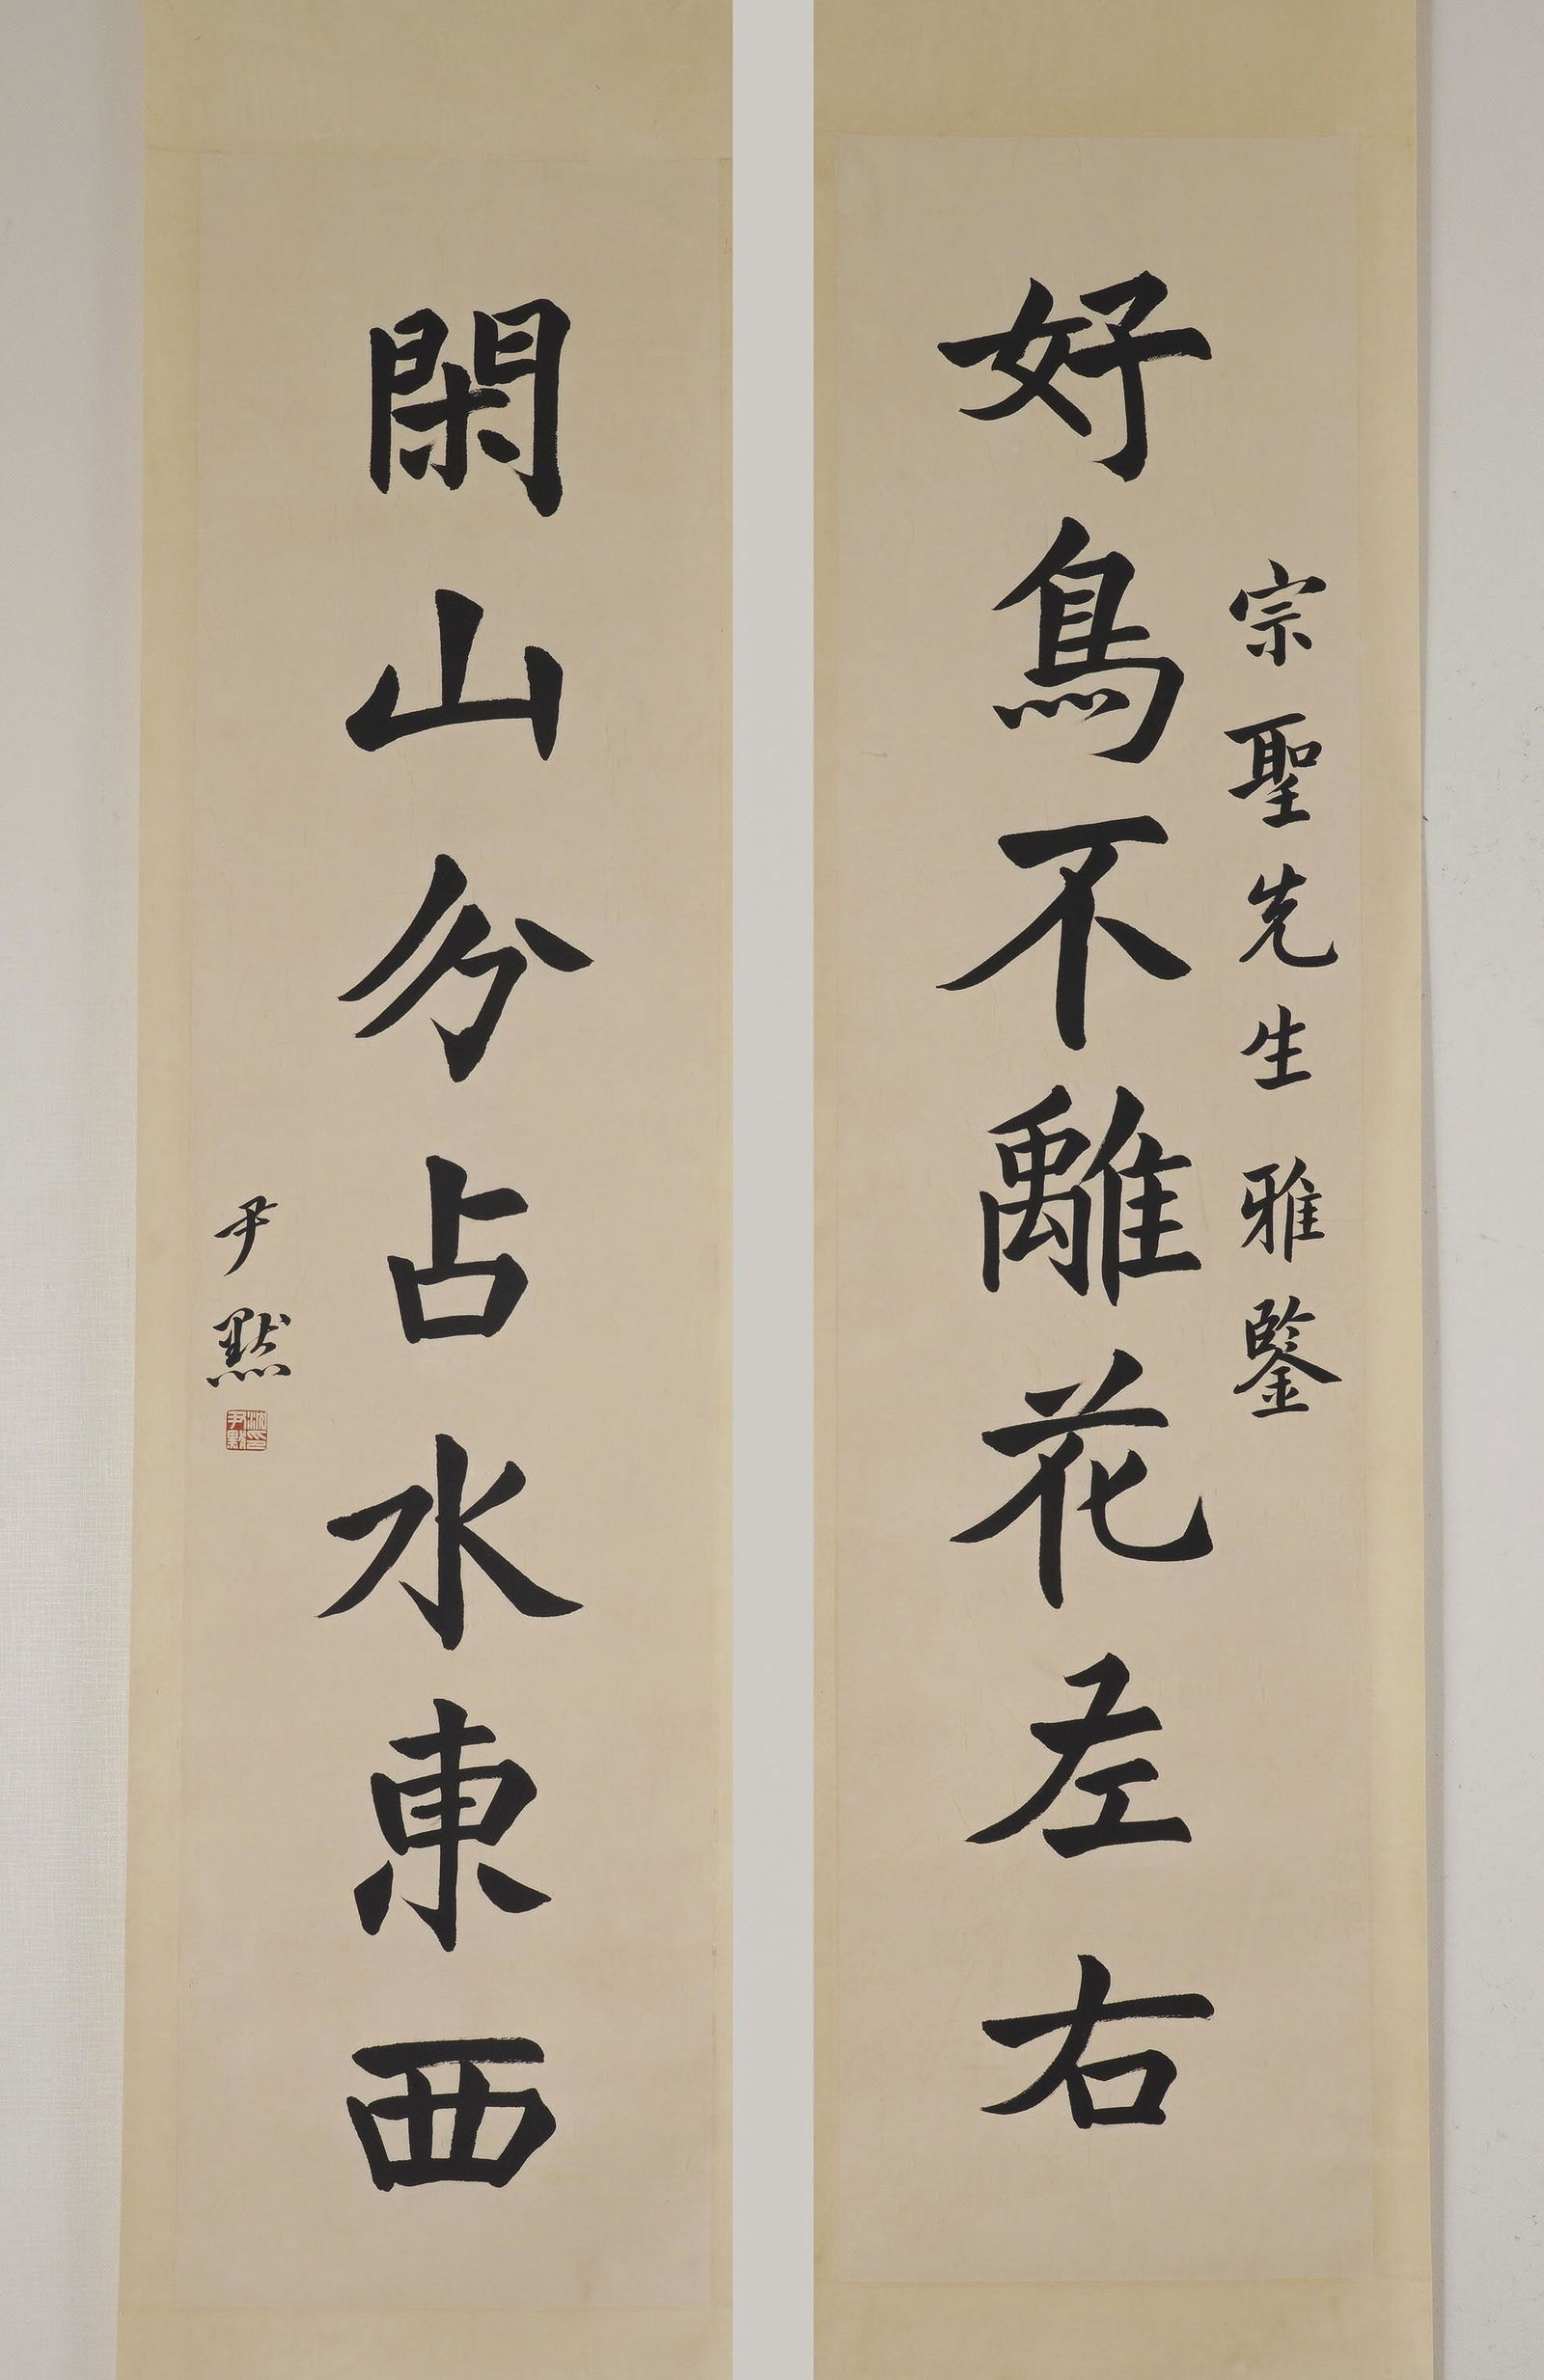 宗聖先生雅鑒
好鳥不離花左右
閑山分占水東西
尹默
沈尹默印